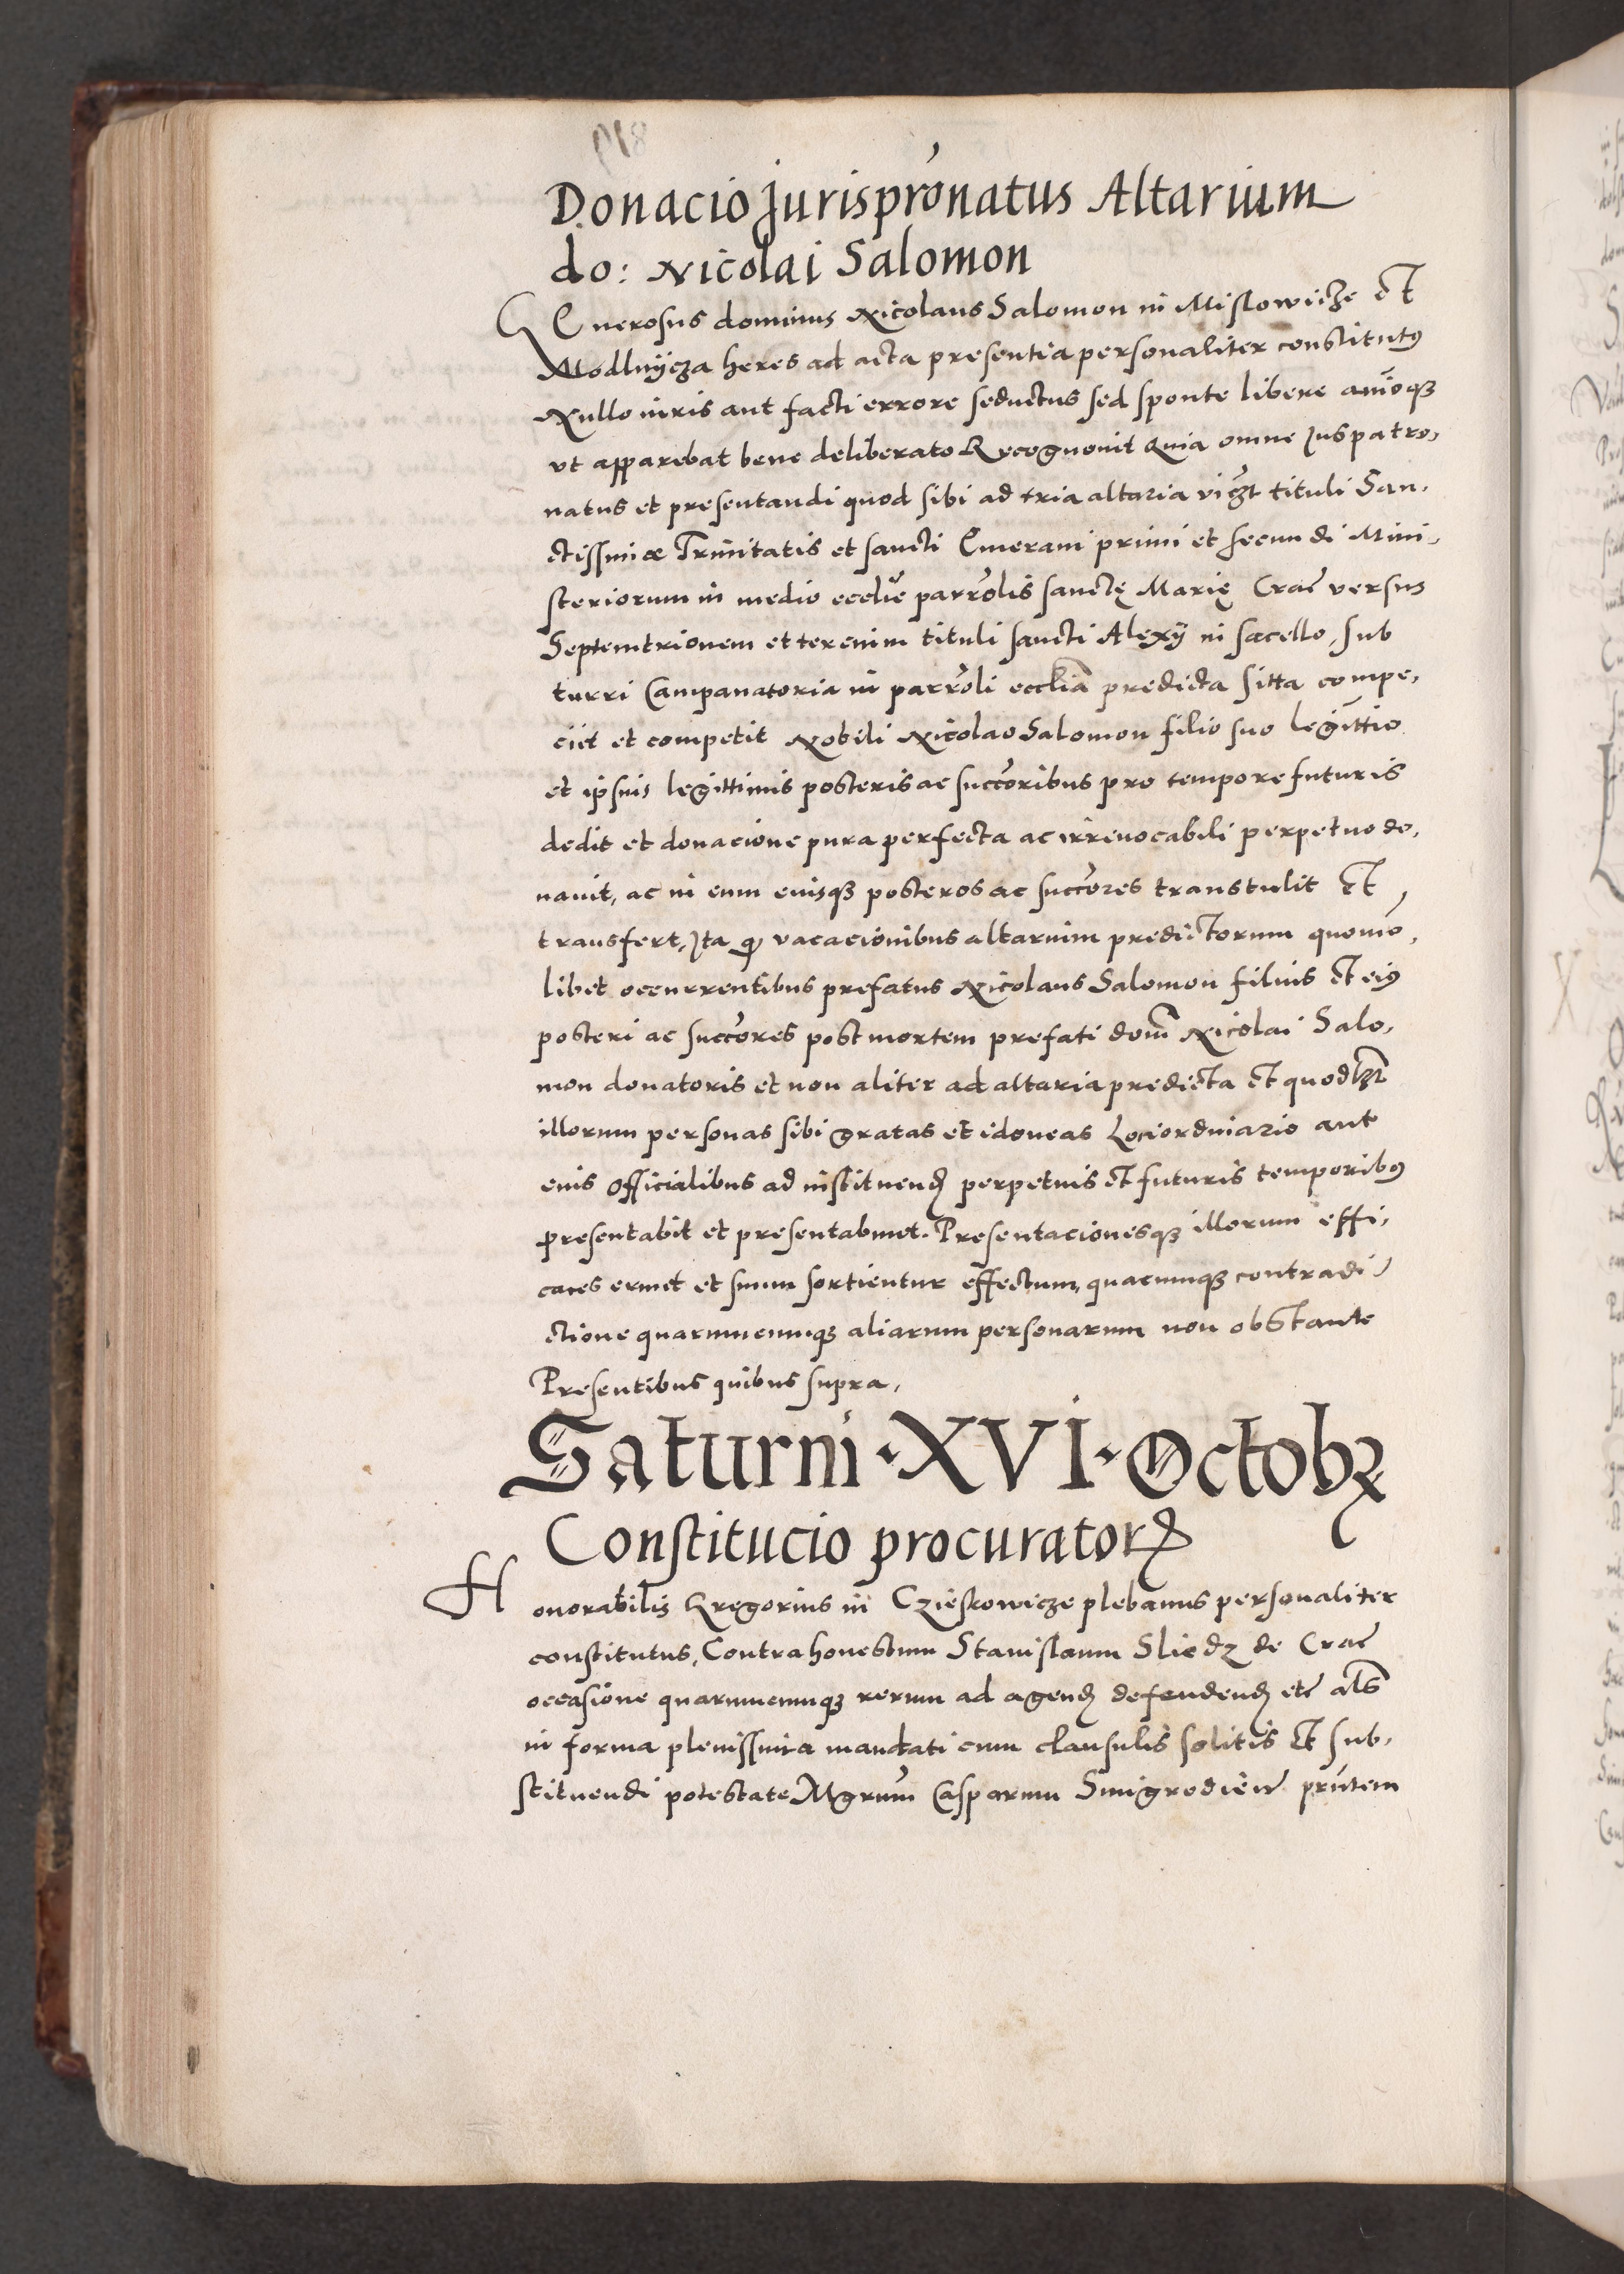 Donacio jurisprōnatus Altarium
do: Nicolai Salomon
Generosus dominus Nicolaus Salomon in Mislowicze et
Modlnycza heres ad acta presentia personaliter constitutꝰ
Nullo iuris aut facti errore seductus sed sponte libere aīoqꝫ
vt apparebat bene deliberato Recognouit Quia omne Juspatro,
natus et presentandi quod sibi ad tria altaria vicꝫt tituli San,
ctissimæ Trinitatis et sancti Emerani primi et secundi Mini,
steriorum in medio ecclīe parrōlis sanctę Marię Crac̄ versus
Septemtrionem et tercium tituli sancti Alexÿ in sacello, sub
turri Campanatoria in parrōli eccliā predicta sitta compe,
ciit et competit Nobili Nicolao Salomon filio suo legittīo
et ipsius legittimis posteris ac succōribus pro tempore futuris
dedit et donacione pura perfecta ac irreuocabili perpetuo do,
nauit, ac in eum eiusqꝫ posteros ac succōres transtulit et
transfert, Ita ꝙ vacacionibus altarium predictorum quomō,
libet occurrentibus prefatus Nicolaus Salomon filius et eiꝰ
posteri ac succōres post mortem prefati dom̄ Nicolai Salo,
mon donatoris et non aliter ad altaria predicta et quodlꝫt
illorum personas sibi gratas et idoneas Lociordinario aut
eius officialibus ad instituend̄ perpetuis et futuris temporibꝰ
presentabit et presentabunt. Presentacionesqꝫ illorum effi,
caces erunt et suum sortientur effectum, quacumqꝫ contradi,
ctione quarumcumqꝫ aliarum personarum non obstante
Presentibus quibus supra,
Saturni · XVI · Octobꝝ
Constitucio procuratorꝭ
Honorabilis Gregorius in Czieskowicze plebanus personaliter
constitutus, Contra honestum Stanislaum Sliedz de Crac̄
occasione quarumcumqꝫ rerum ad agend̄ defendend̄ etc̄ al̄s
in forma plenissima mandati cum clausulis solitis et sub,
stituendi potestate Mgrum̄ Casparum Smigrodien̄ prn̄tem